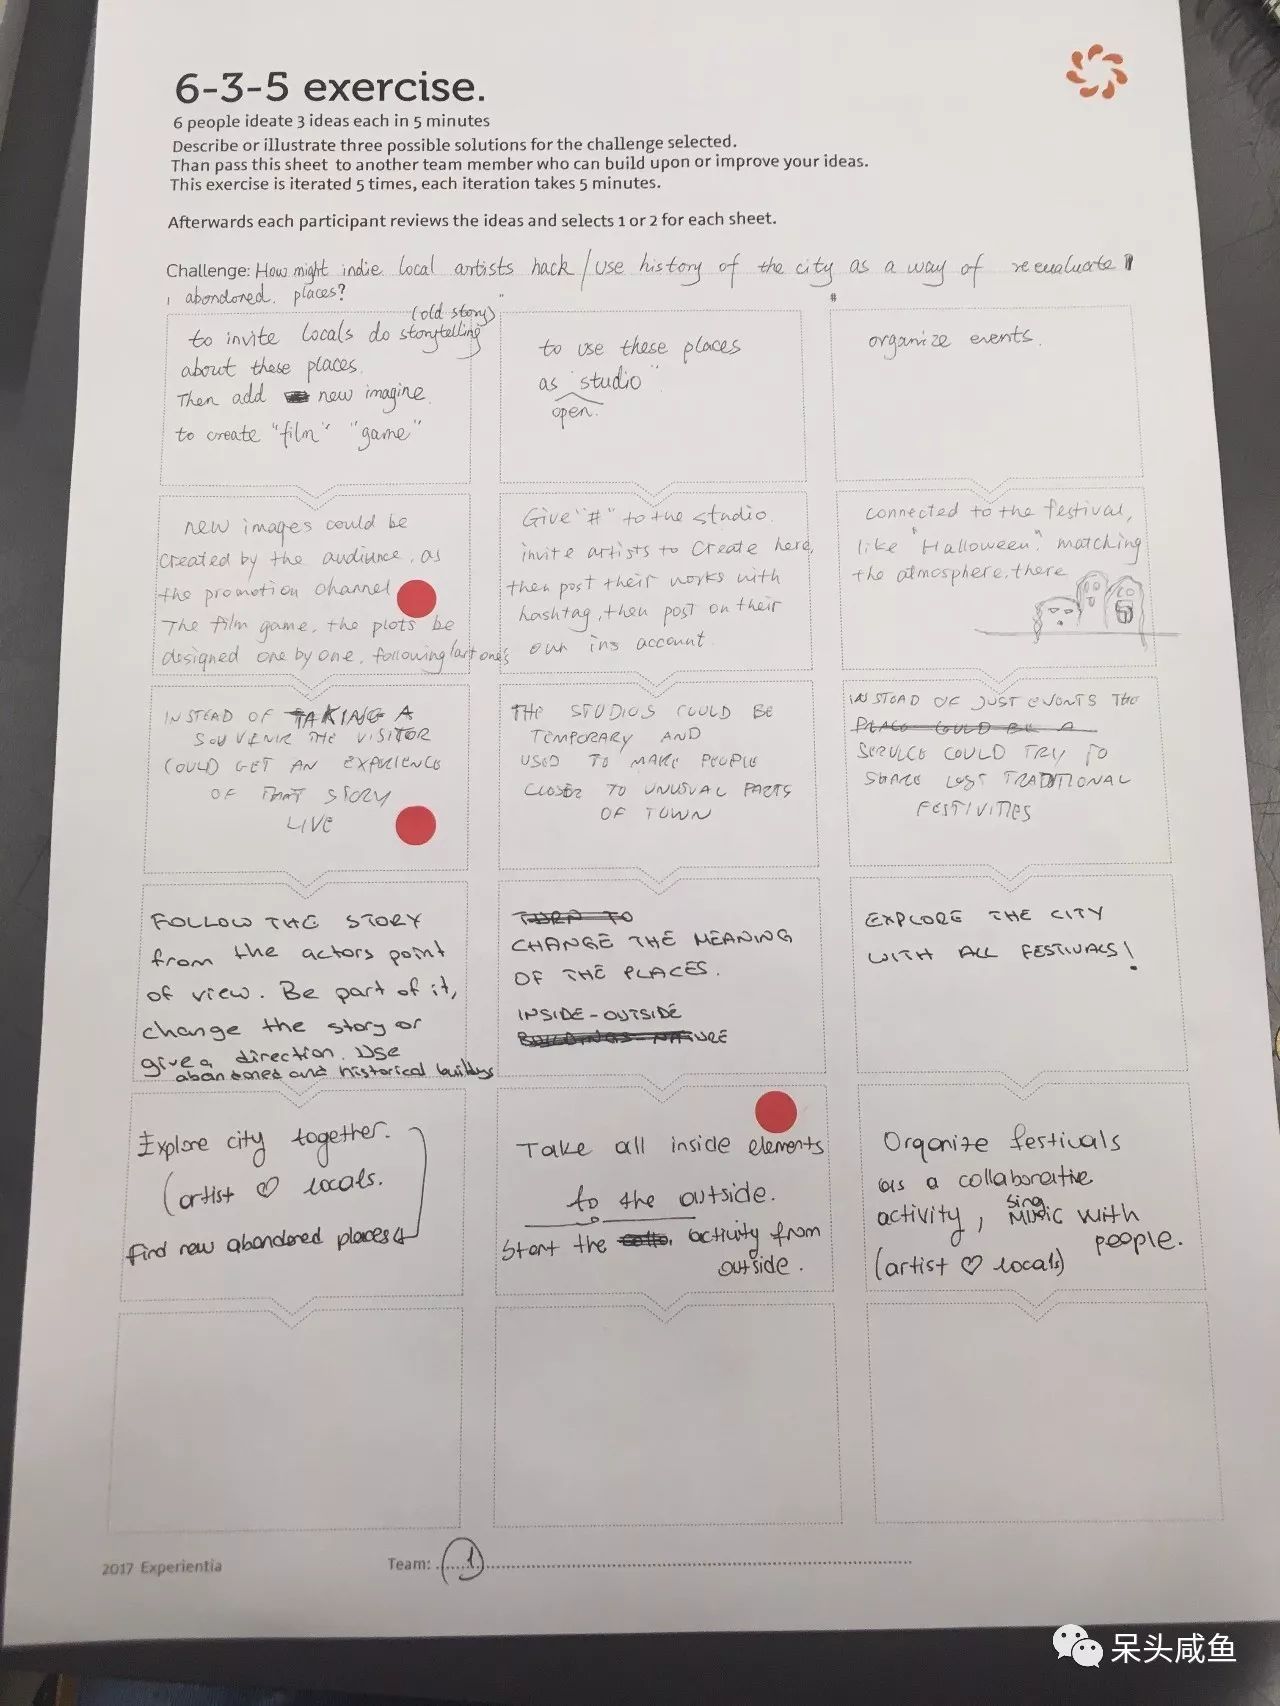 6-3-5 exercise.
6 people ideate 3 ideas each in 5 minutes
Describe or illustrate three possible solutions for the challenge selected.
Than pass this sheet to another team member who can build upon or improve your ideas.
This exercise is iterated 5 times, each iteration takes 5 minutes.
Afterwards each participant reviews the ideas and selects 1 or 2 for each sheet.
Challenge: How might indie local artists hack / use history of the city as a way of reevaluate
abandored. places?
(old story)
to invite locals do storytelling
about these places.
Then add new imagine.
to create "film" "game"
to use these places
as "studio".
open.
#
organize events.
new images could be
created by the audiance, as
the promotion channel
The film game, the plots be
designed one by one, following last one's
Give "#" to the studio.
invite artists to create here,
then post their works with
hashtag, then post on their
own ins account.
connected to the festival,
like "Halloween", matching
the atmosphere, there
INSTEAD OF TAKING A
SOUVENIR THE VISITOR
COULD GET AN EXPERIENCE
OF THAT STORY
LIVE
THE STUDIOS COULD BE
TEMPORARY AND
USED TO MAKE PEOPLE
CLOSER TO UNUSUAL PARTS
OF TOWN
INSTEAD OF JUST EVENTS THE
PLACE COULD BE A
SERVICE COULD TRY TO
SHARE LOST TRADITIONAL
FESTIVITIES
FOLLOW THE STORY
from the actors point
of view. Be part of it,
change the story or
give a direction. Use
abandoned and historical buildings
TURN TO
CHANGE THE MEANING
OF THE PLACES.
INSIDE-OUTSIDE
BUILDINGS-NATURE
EXPLORE THE CITY
WITH ALL FESTIVALS!
Explore city together.
(artist ♡ locals.
find new abandoned places
Take all inside elements
to the outside.
Start the activity from
outside.
Organize festivals
as a collaborative
activity, sing MUSIC with
people.
(artist ♡ locals)
2017 Experientia
Team: 1
呆头咸鱼